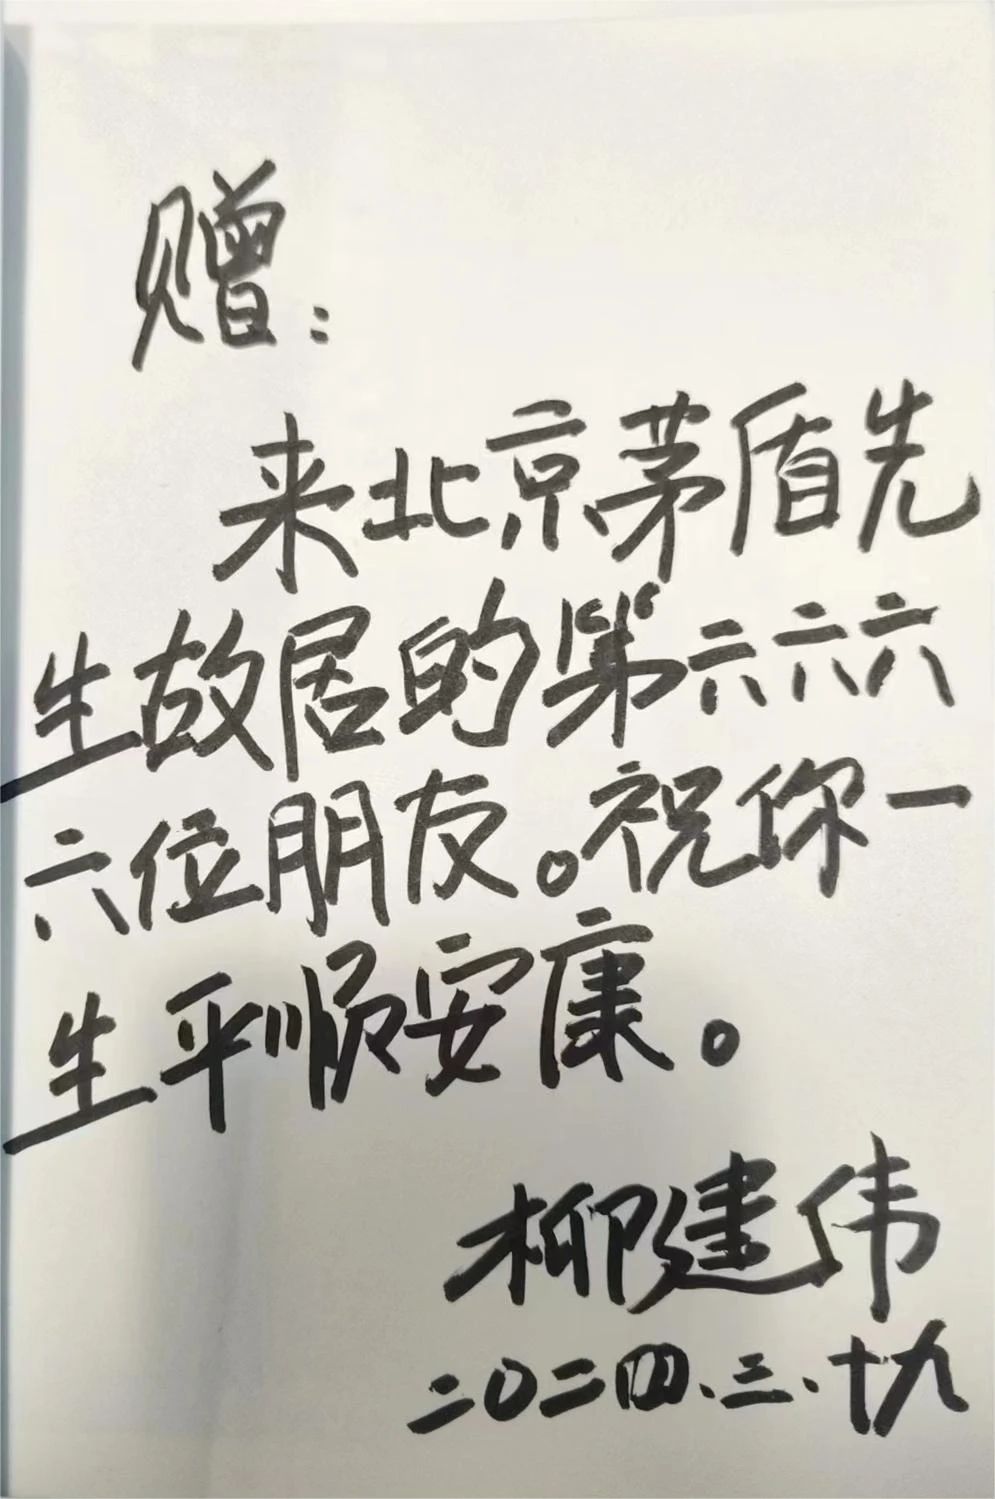 赠：
来北京茅盾先
生故居的第六六六
六位朋友。祝你一
生平顺安康。
柳建伟
二〇二四、三、十九